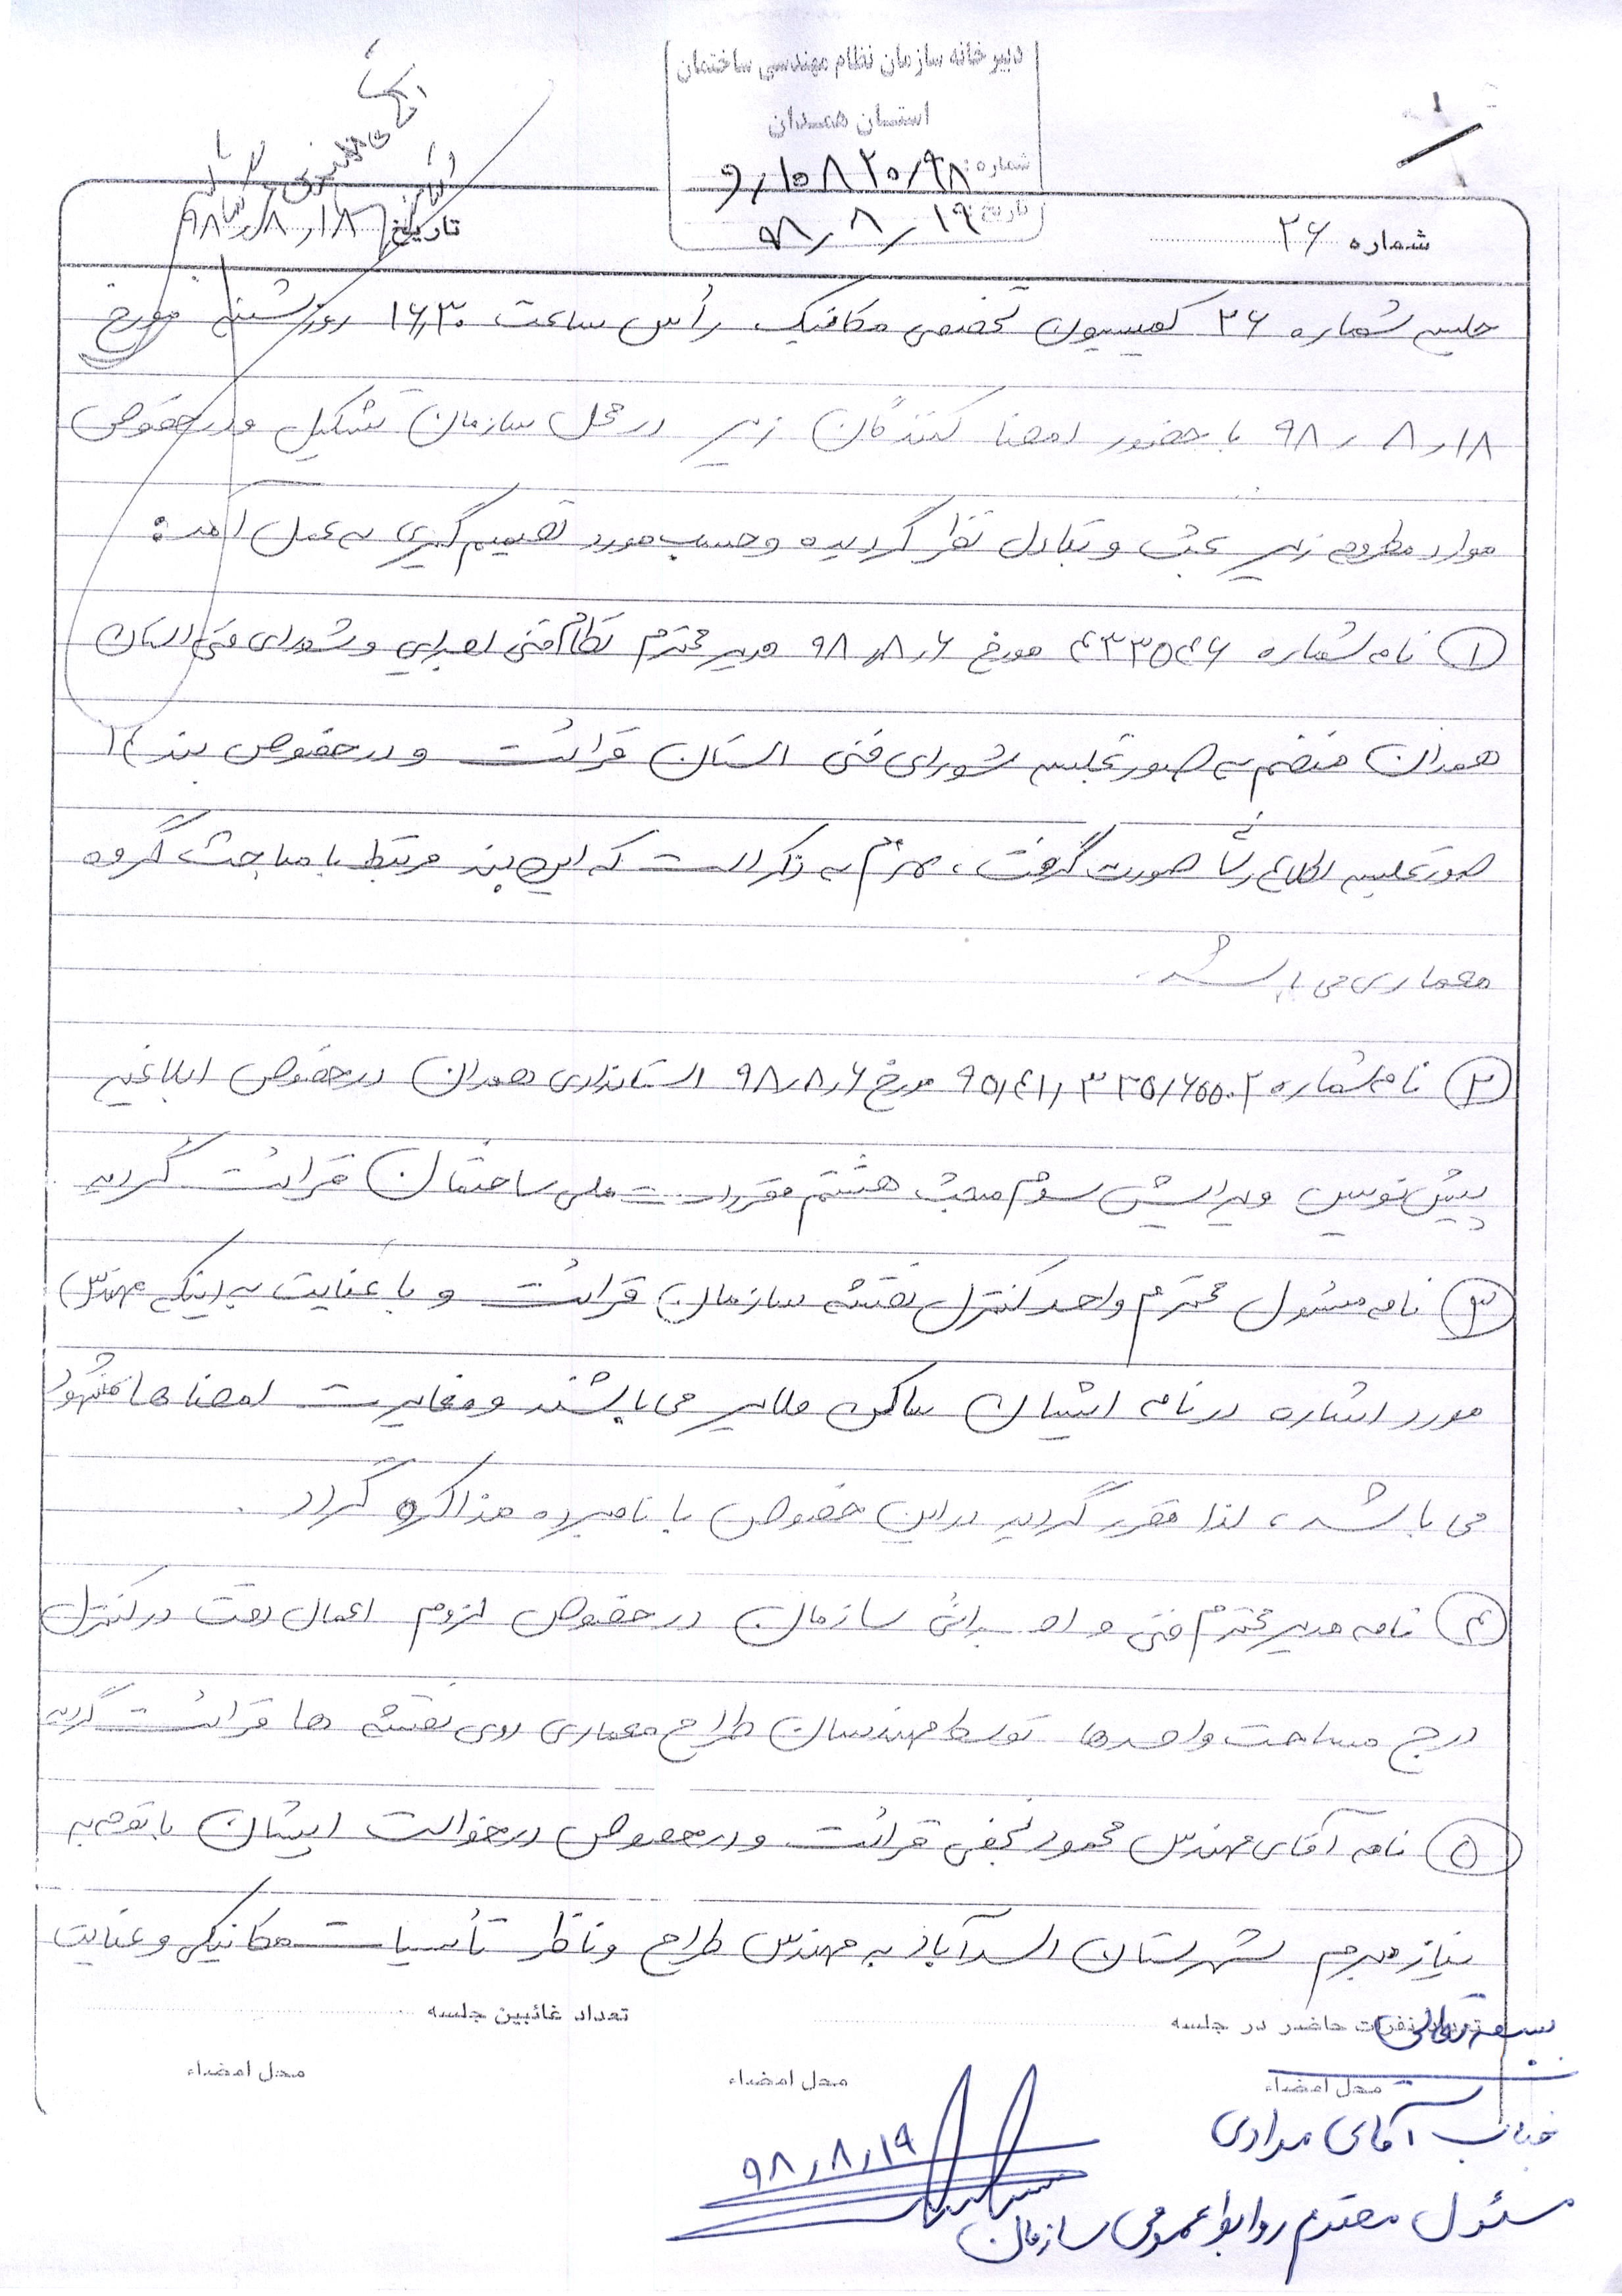 دبیرخانه سازمان نظام مهندسی ساختمان
استان همدان
شماره: ۹۸/۱۰۸۲۰/و
تاریخ: ۹۸/۸/۱۹
شماره ۲۶
تاریخ ۹۸/۸/۱۸
جلسه شماره ۲۶ کمیسیون تخصصی مکانیک رأس ساعت ۱۶/۳۰ روز شنبه مورخ
۹۸/۸/۱۸ با حضور امضا کنندگان زیر در محل سازمان تشکیل و در خصوص
موارد مطروحه زیر بحث و تبادل نظر گردیده و حسب مورد تصمیم گیری به عمل آمد:
۱ نامه شماره ۴۳۳۵۴۶ مورخ ۹۸/۸/۶ مدیر محترم نظام فنی اجرایی و شورای فنی استان
همدان منضم به صورتجلسه شورای فنی استان قرائت و در خصوص بند
صورتجلسه اطلاع رسانی صورت گرفت، لازم به ذکر است که این بند مرتبط با مباحث گروه
معماری می باشد.
۲ نامه شماره مورخ ۹۸/۸/۶ استانداری همدان در خصوص ابلاغیه
پیش نویس ویرایش سوم مبحث هشتم مقررات ملی ساختمان قرائت گردید
۳ نامه مسئول محترم واحد کنترل نقشه سازمان قرائت و با عنایت به اینکه مهندس
مورد اشاره در نامه ایشان ساکن ملایر می باشند و مغایرت امضاها مشهود
می باشد، لذا مقرر گردید در این خصوص با نامبرده مذاکره گردد.
۴ نامه مدیر محترم فنی و اجرائی سازمان در خصوص لزوم اعمال دقت در کنترل
درج مساحت واحدها توسط مهندسان طراح معماری روی نقشه ها قرائت گردید
۵ نامه آقای مهندس محمود نجفی قرائت و در خصوص درخواست ایشان با توجه به
نیاز مبرم شهرستان اسدآباد به مهندس طراح و ناظر تأسیسات مکانیکی و عنایت
تعداد نفرات حاضر در جلسه
تعداد غائبین جلسه
محل امضاء
محل امضاء
محل امضاء
بسمه تعالی
جناب آقای مرادی
مسئول محترم روابط عمومی سازمان
۹۸/۸/۱۹